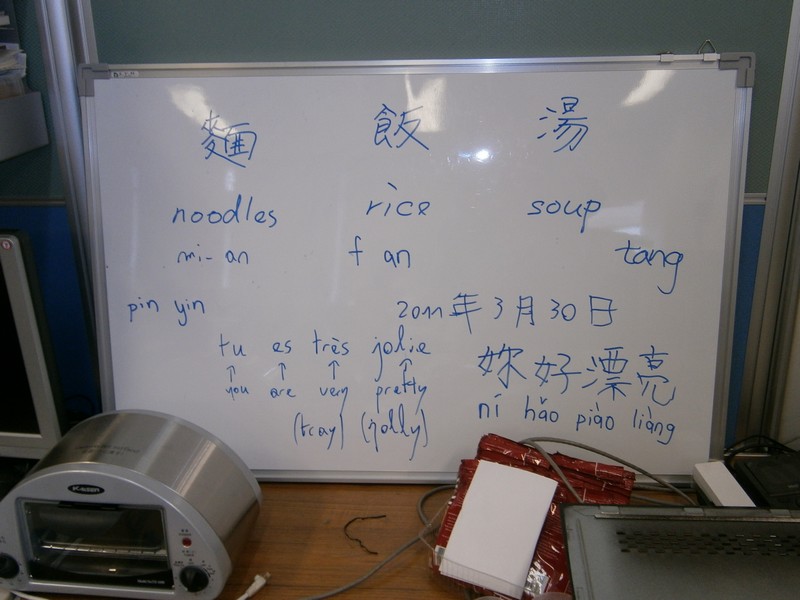 麵 飯 湯
noodles rice soup
mi-an fan tang
pin yin 2011年3月30日
tu es très jolie
↑ ↑ ↑ ↑
you are very pretty
(tray) (jolly)
妳好漂亮
ní hǎo piào liàng
Kaiien